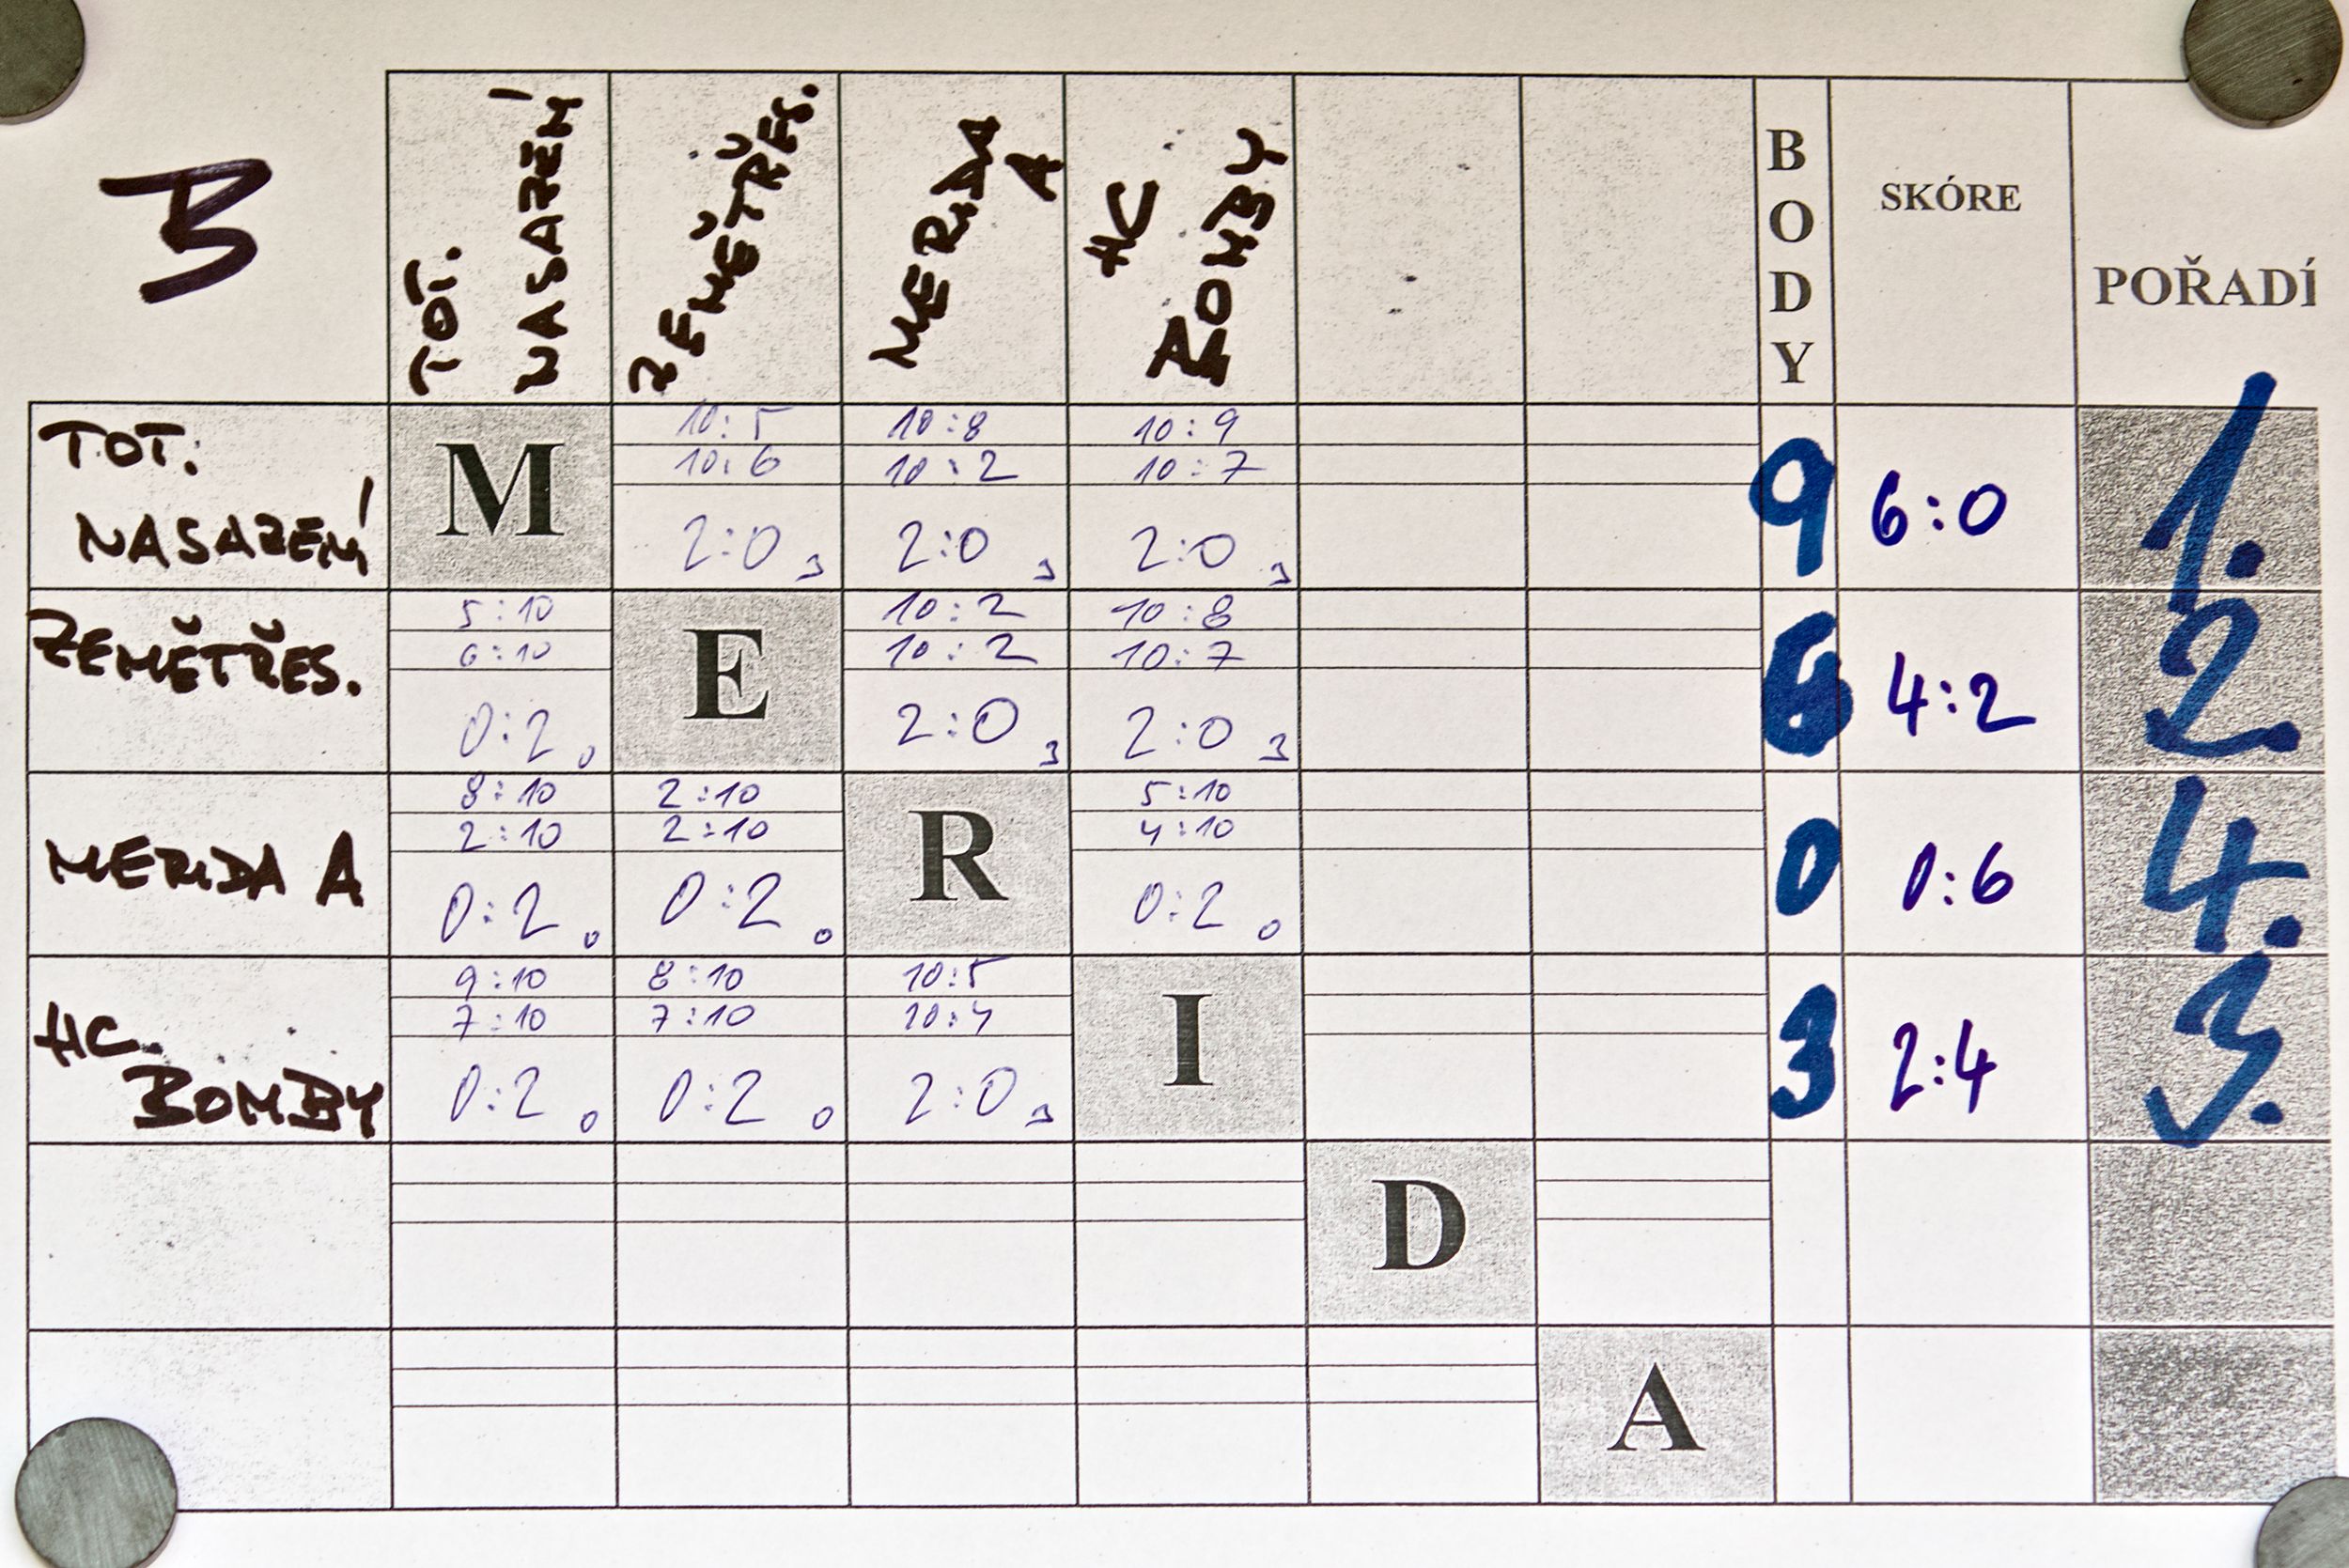 B
TOT. NASAZENÍ
ZEMĚTŘES.
MERIDA A
HC ZOMBY
BODY
SKÓRE
POŘADÍ
TOT.
NASAZENÍ
M
10:5 10:8 10:9
10:6 10:2 10:7
2:0 3 2:0 3 2:0 3
9 6:0 1.
ZEMĚTŘES.
5:10 E 10:2 10:8
6:10 10:2 10:7
0:2 0 2:0 3 2:0 3
6 4:2 2.
MERIDA A
8:10 2:10 R 5:10
2:10 2:10 4:10
0:2 0 0:2 0 0:2 0
0 0:6 4.
HC.
BOMBY
9:10 8:10 10:5 I
7:10 7:10 10:4
0:2 0 0:2 0 2:0 3
3 2:4 3.
D
A